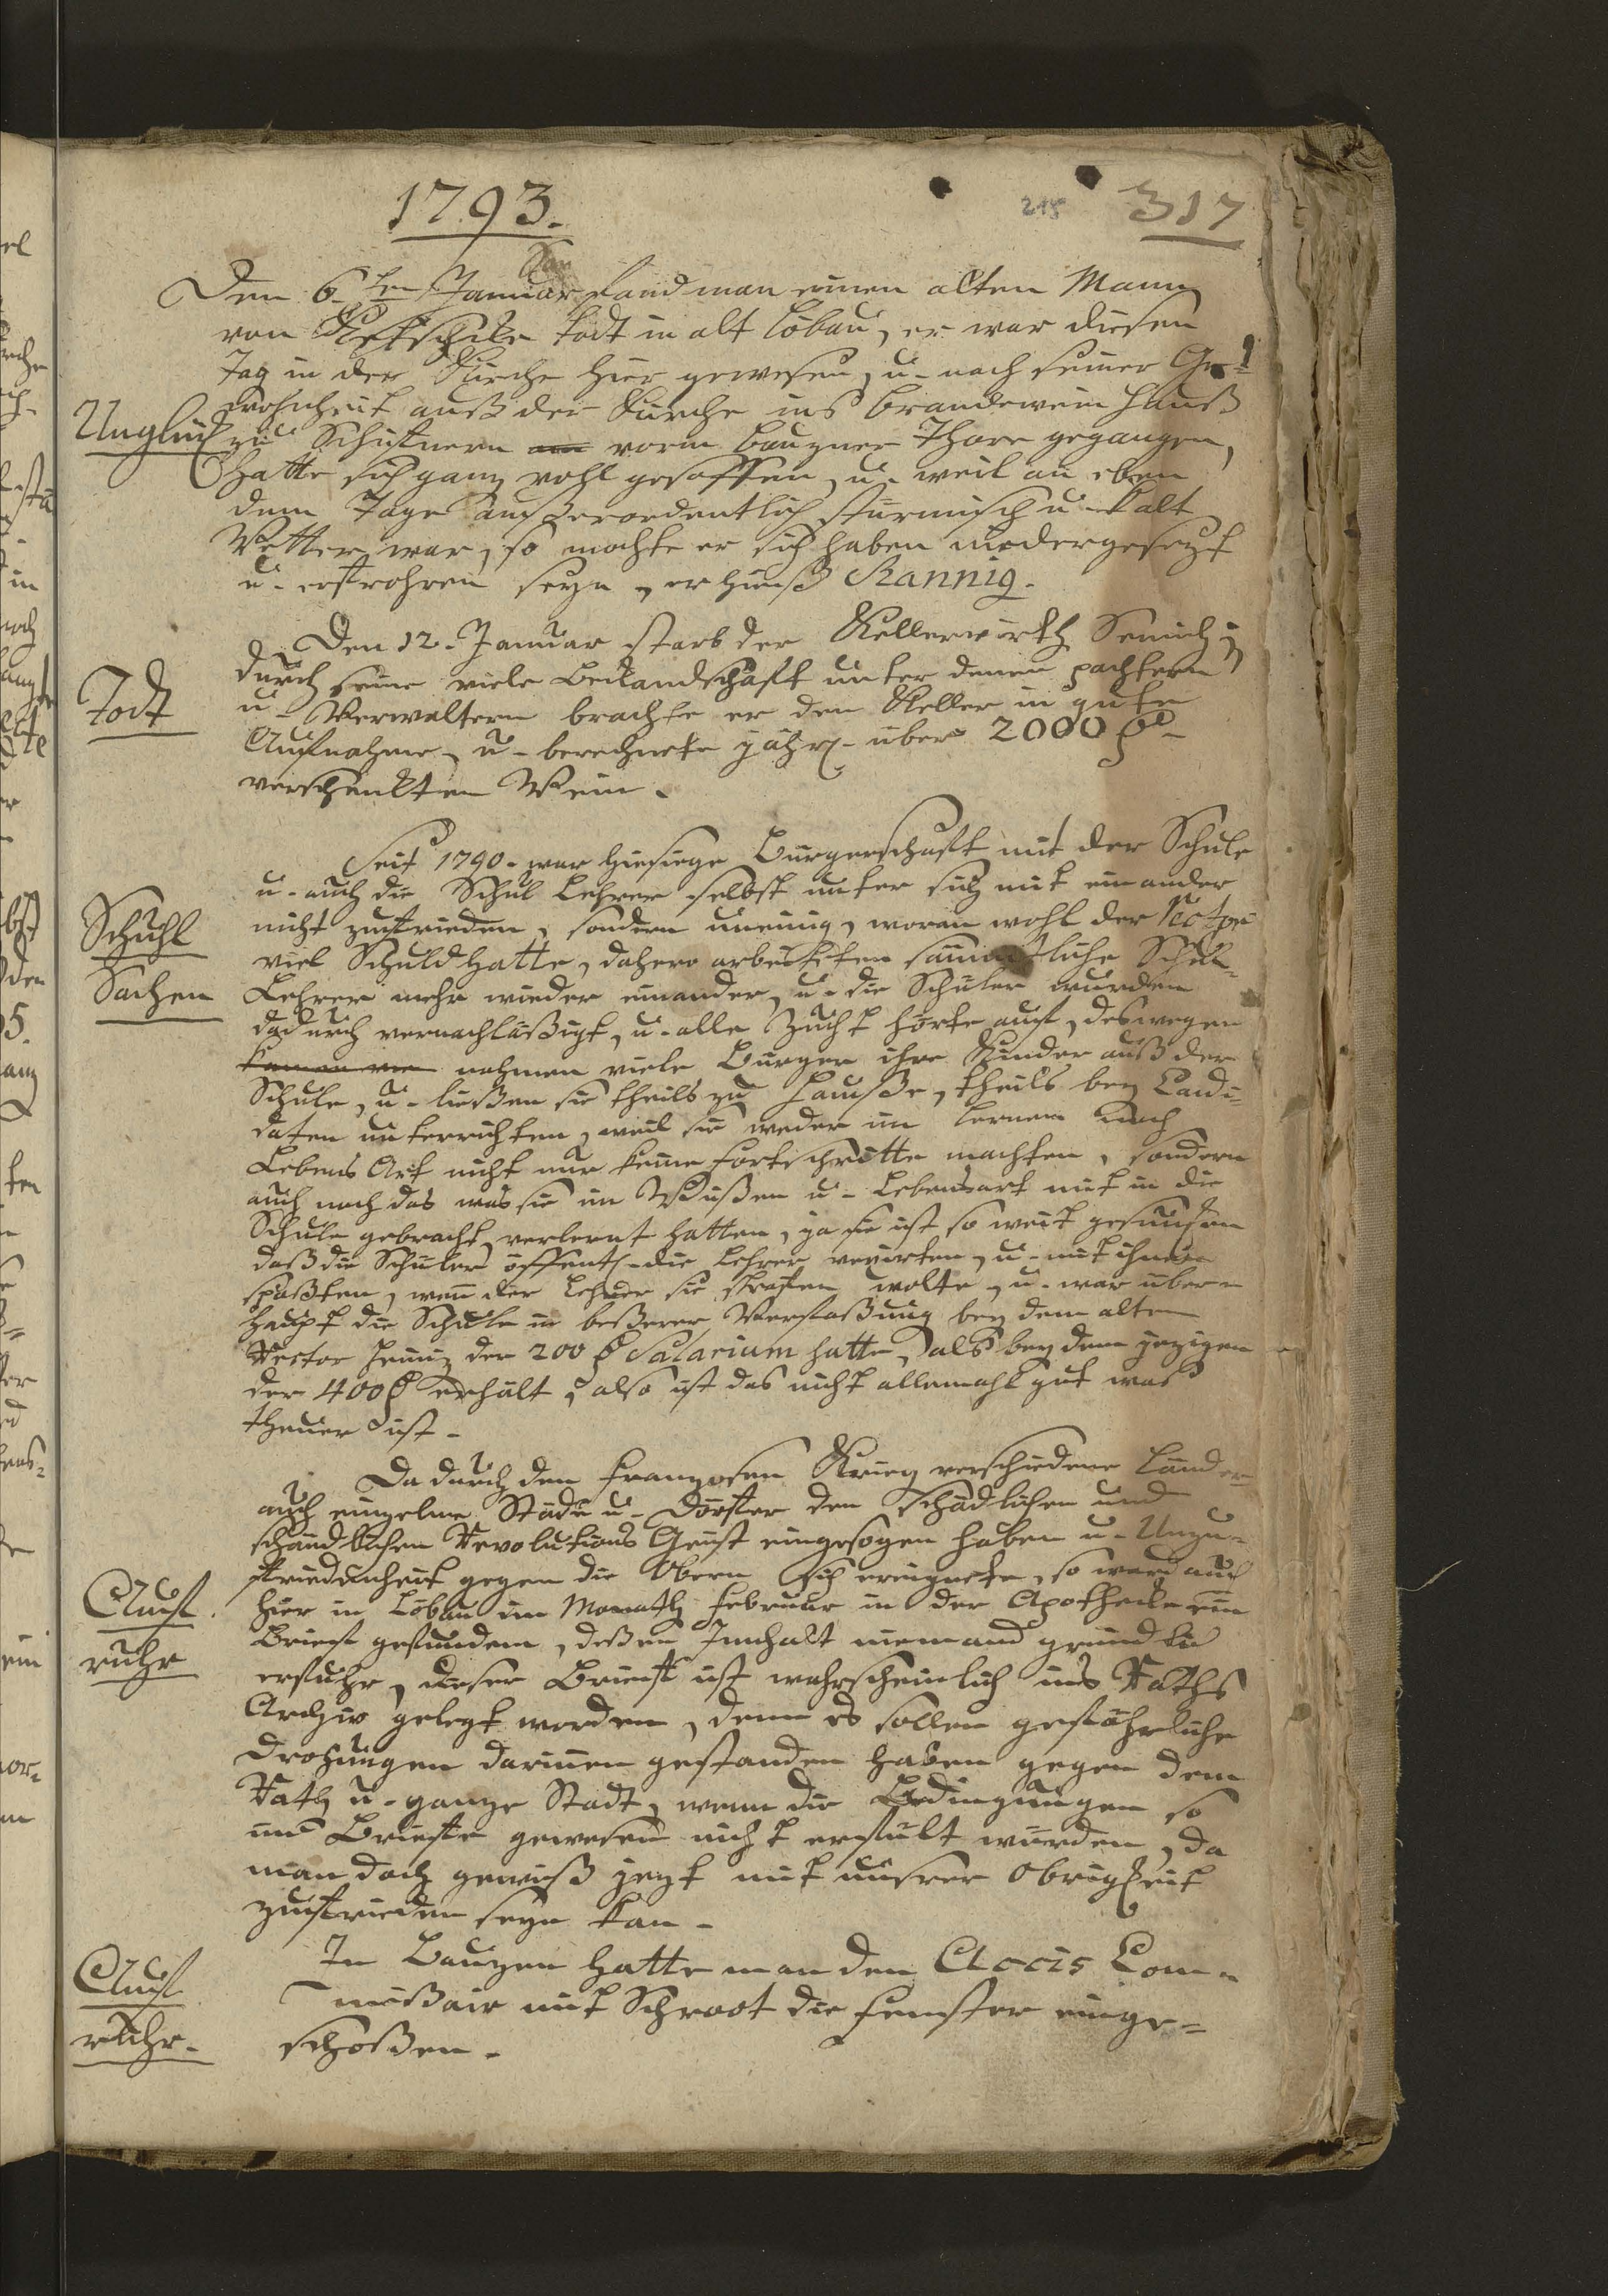 1793.
215
317
Den 6ten Januar fand man einen alten Mann
von todt in alt Löbau, er war diesen
Tag in der Kirche hier gewesen, u. nach seiner Ge=
wohnheit auß der Kirche ins Brandewein Hauß
Unglück
zu Schustern vorm Bauzner Thore gegangen,
hatte sich ganz voll gesoffen, u. weil an eben
dem Tage außerordentlich stürmisch u. kalt
Wetter war, so mochte er sich haben niedergesezt
u. erfrohren seyn, er hieß Rannig.
Den 12. Januar starb der Kellerwirth
durch seine viele Bekandschaft unter denen pachtern
Todt
u. Verwaltern brachte er den Keller in gute
Aufnahme, u. berechnete jährl. über 2000
verschenkten Wein.
Seit 1790. war hiesiege Burgerschaft mit der Schule
u. auch die Schul Lehrer selbst unter sich mit einander
Schuhl
nicht zufrieden, sondern uneinig, woran wohl der
viel Schuld hatte, dahero arbeiteten sämmtliche Schul=
Sachen
Lehrer mehr wieder einander, u. die Schüler wurden
dadurch vernachläßigt, u. alle Zucht hörte auf, deswegen
nahmen viele Burger ihre Kinder auß der
Schule, u. ließen sie theils zu Hauße, theils bey Candi=
daten unterrichten, weil sie weder im lernen noch
Lebens Art nicht nur keine fortschritte machten, sondern
auch noch das was sie im Wißen u. Lebensart mit in die
Schule gebracht, verlernt hatten, ja sie ist so weit gesunken
daß die Schüler öffentl. die Lehrer vexirten, u. mit ihnen
spaßten, wenn der Lehrer sie strafen wolte, u. war über=
haupt die Schule in beßerer Verfaßung bey dem alten
Rector der 200 Salarium hatte, als bey dem jezigen
der 400 erhält, also ist das nicht allemahl gut was
theuer ist.
Da durch den Franzosen Krieg verschiedene Länder
auch einzelne Städte u. Dörfer den schädlichen und
schändlichen Revolutions Geist eingesogen haben u. Unzu=
friedenheit gegen die Obern sich ereignete, so ward auch
Auf
hier in Löbau im Monath Februar in der Apotheke ein
ruhr
Brief gefunden, deßen Innhalt niemand gründlich
erfuhr, dieser Brief ist wahrscheinlich ins Raths
Archiv gelegt worden, denn es sollen gefährliche
Drohungen darinnen gestanden haben gegen dem
Rath u. ganze Stadt, wenn die Bedingungen so
im Briefe gewesen nicht erfült würden, da
man doch gewiß jezt mit unsrer Obrigkeit
zufrieden seyn kan.
Auf
In Bauzen hatte man den Accis Com=
mißair mit Schroot die Fenster einge=
ruhr.
schoßen.